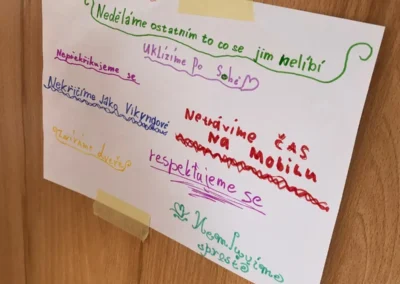 Neděláme ostatním to co se jim nelíbí
Uklízíme po sobě
Nepřekřikujeme se
Nekřičíme jako Vikingové
Netrávíme čas
na mobilu
respektujeme se
Nemluvíme
sprostě